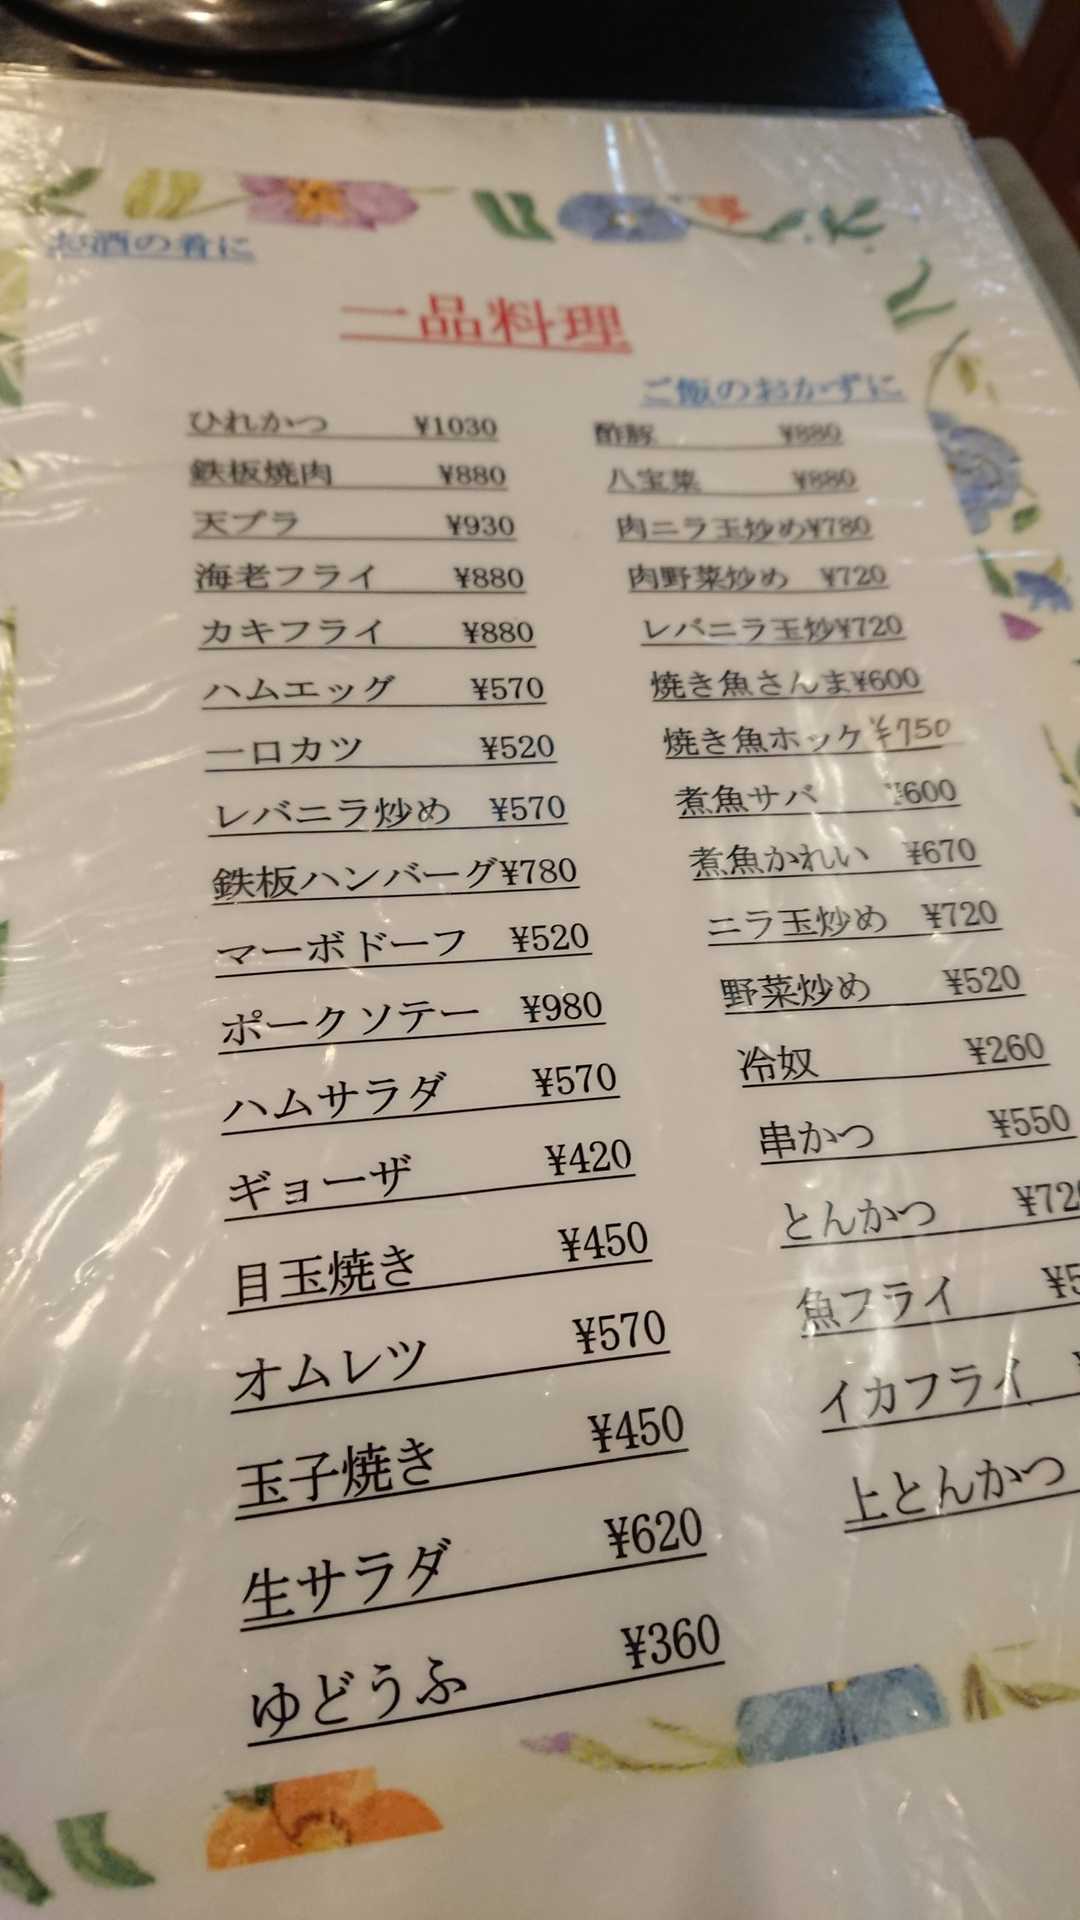 お酒の肴に
一品料理
ひれかつ ¥1030
鉄板焼肉 ¥880
天プラ ¥930
海老フライ ¥880
カキフライ ¥880
ハムエッグ ¥570
一口カツ ¥520
レバニラ炒め ¥570
鉄板ハンバーグ¥780
マーボドーフ ¥520
ポークソテー ¥980
ハムサラダ ¥570
ギョーザ ¥420
目玉焼き ¥450
オムレツ ¥570
玉子焼き ¥450
生サラダ ¥620
ゆどうふ ¥360
ご飯のおかずに
酢豚 ¥880
八宝菜 ¥880
肉ニラ玉炒め¥780
肉野菜炒め ¥720
レバニラ玉炒¥720
焼き魚さんま¥600
焼き魚ホッケ¥750
煮魚サバ ¥600
煮魚かれい ¥670
ニラ玉炒め ¥720
野菜炒め ¥520
冷奴 ¥260
串かつ ¥550
とんかつ ¥72
魚フライ ¥5
イカフライ
上とんかつ